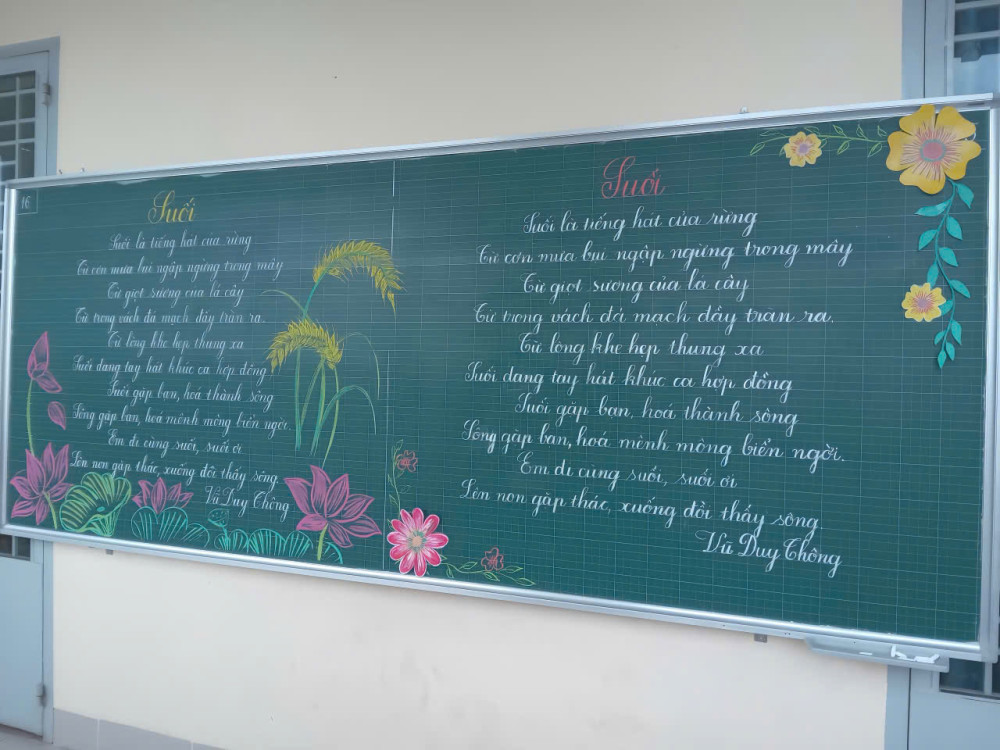 16
Suối
Suối là tiếng hát của rừng
Từ cơn mưa bụi ngập ngừng trong mây
Từ giọt sương của lá cây
Từ trong vách đá mạch đầy tràn ra.
Từ lòng khe hẹp thung xa
Suối dang tay hát khúc ca hợp đồng
Suối gặp bạn, hoá thành sông
Sông gặp bạn, hoá mênh mông biển ngời.
Em đi cùng suối, suối ơi
Lên non gặp thác, xuống đồi thấy sông
Vũ Duy Thông
Suối
Suối là tiếng hát của rừng
Từ cơn mưa bụi ngập ngừng trong mây
Từ giọt sương của lá cây
Từ trong vách đá mạch đầy tràn ra.
Từ lòng khe hẹp thung xa
Suối dang tay hát khúc ca hợp đồng
Suối gặp bạn, hoá thành sông
Sông gặp bạn, hoá mênh mông biển ngời.
Em đi cùng suối, suối ơi
Lên non gặp thác, xuống đồi thấy sông
Vũ Duy Thông